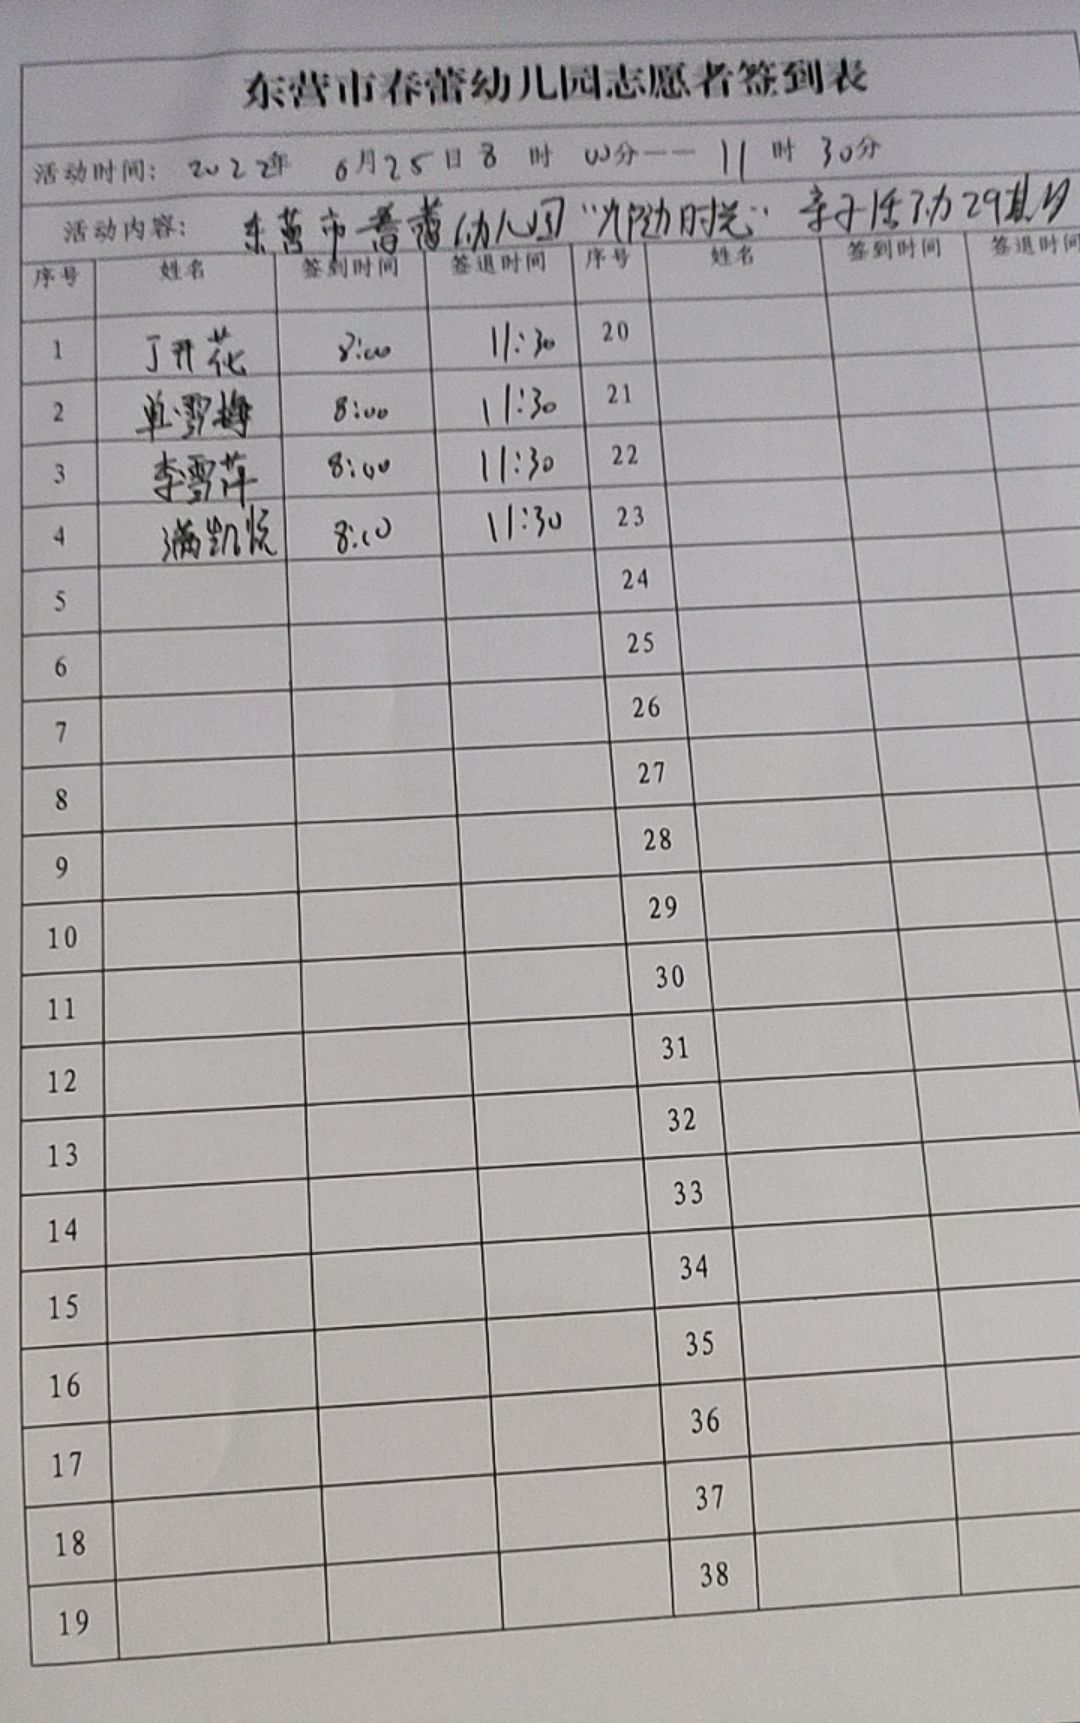 东营市春蕾幼儿园志愿者签到表
活动时间: 2022年 6月25日8时 00分——11时30分
活动内容: 东营市春蕾幼儿园“ 时光” 亲子活动29期
序号 姓名 签到时间 签退时间 序号 姓名 签到时间 签退时间
1 丁开花 8:00 11:30 20
2 单雪梅 8:00 11:30 21
3 李雪萍 8:00 11:30 22
4 满凯悦 8:00 11:30 23
5 24
6 25
7 26
8 27
9 28
10 29
11 30
12 31
13 32
14 33
15 34
16 35
17 36
18 37
19 38